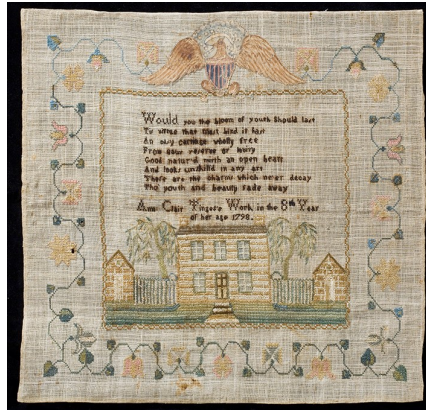 Would you the bloom of youth should last
Tis virtue that must bind it fast
An easy carriage wholly free
From sour reserve or levity
Good natur'd mirth an open heart
And looks unskilld in any art
These are the charms which neer decay
Tho youth and beauty fade away
Ann Clair Tingers Work in the 8th Year
of her age 1798.